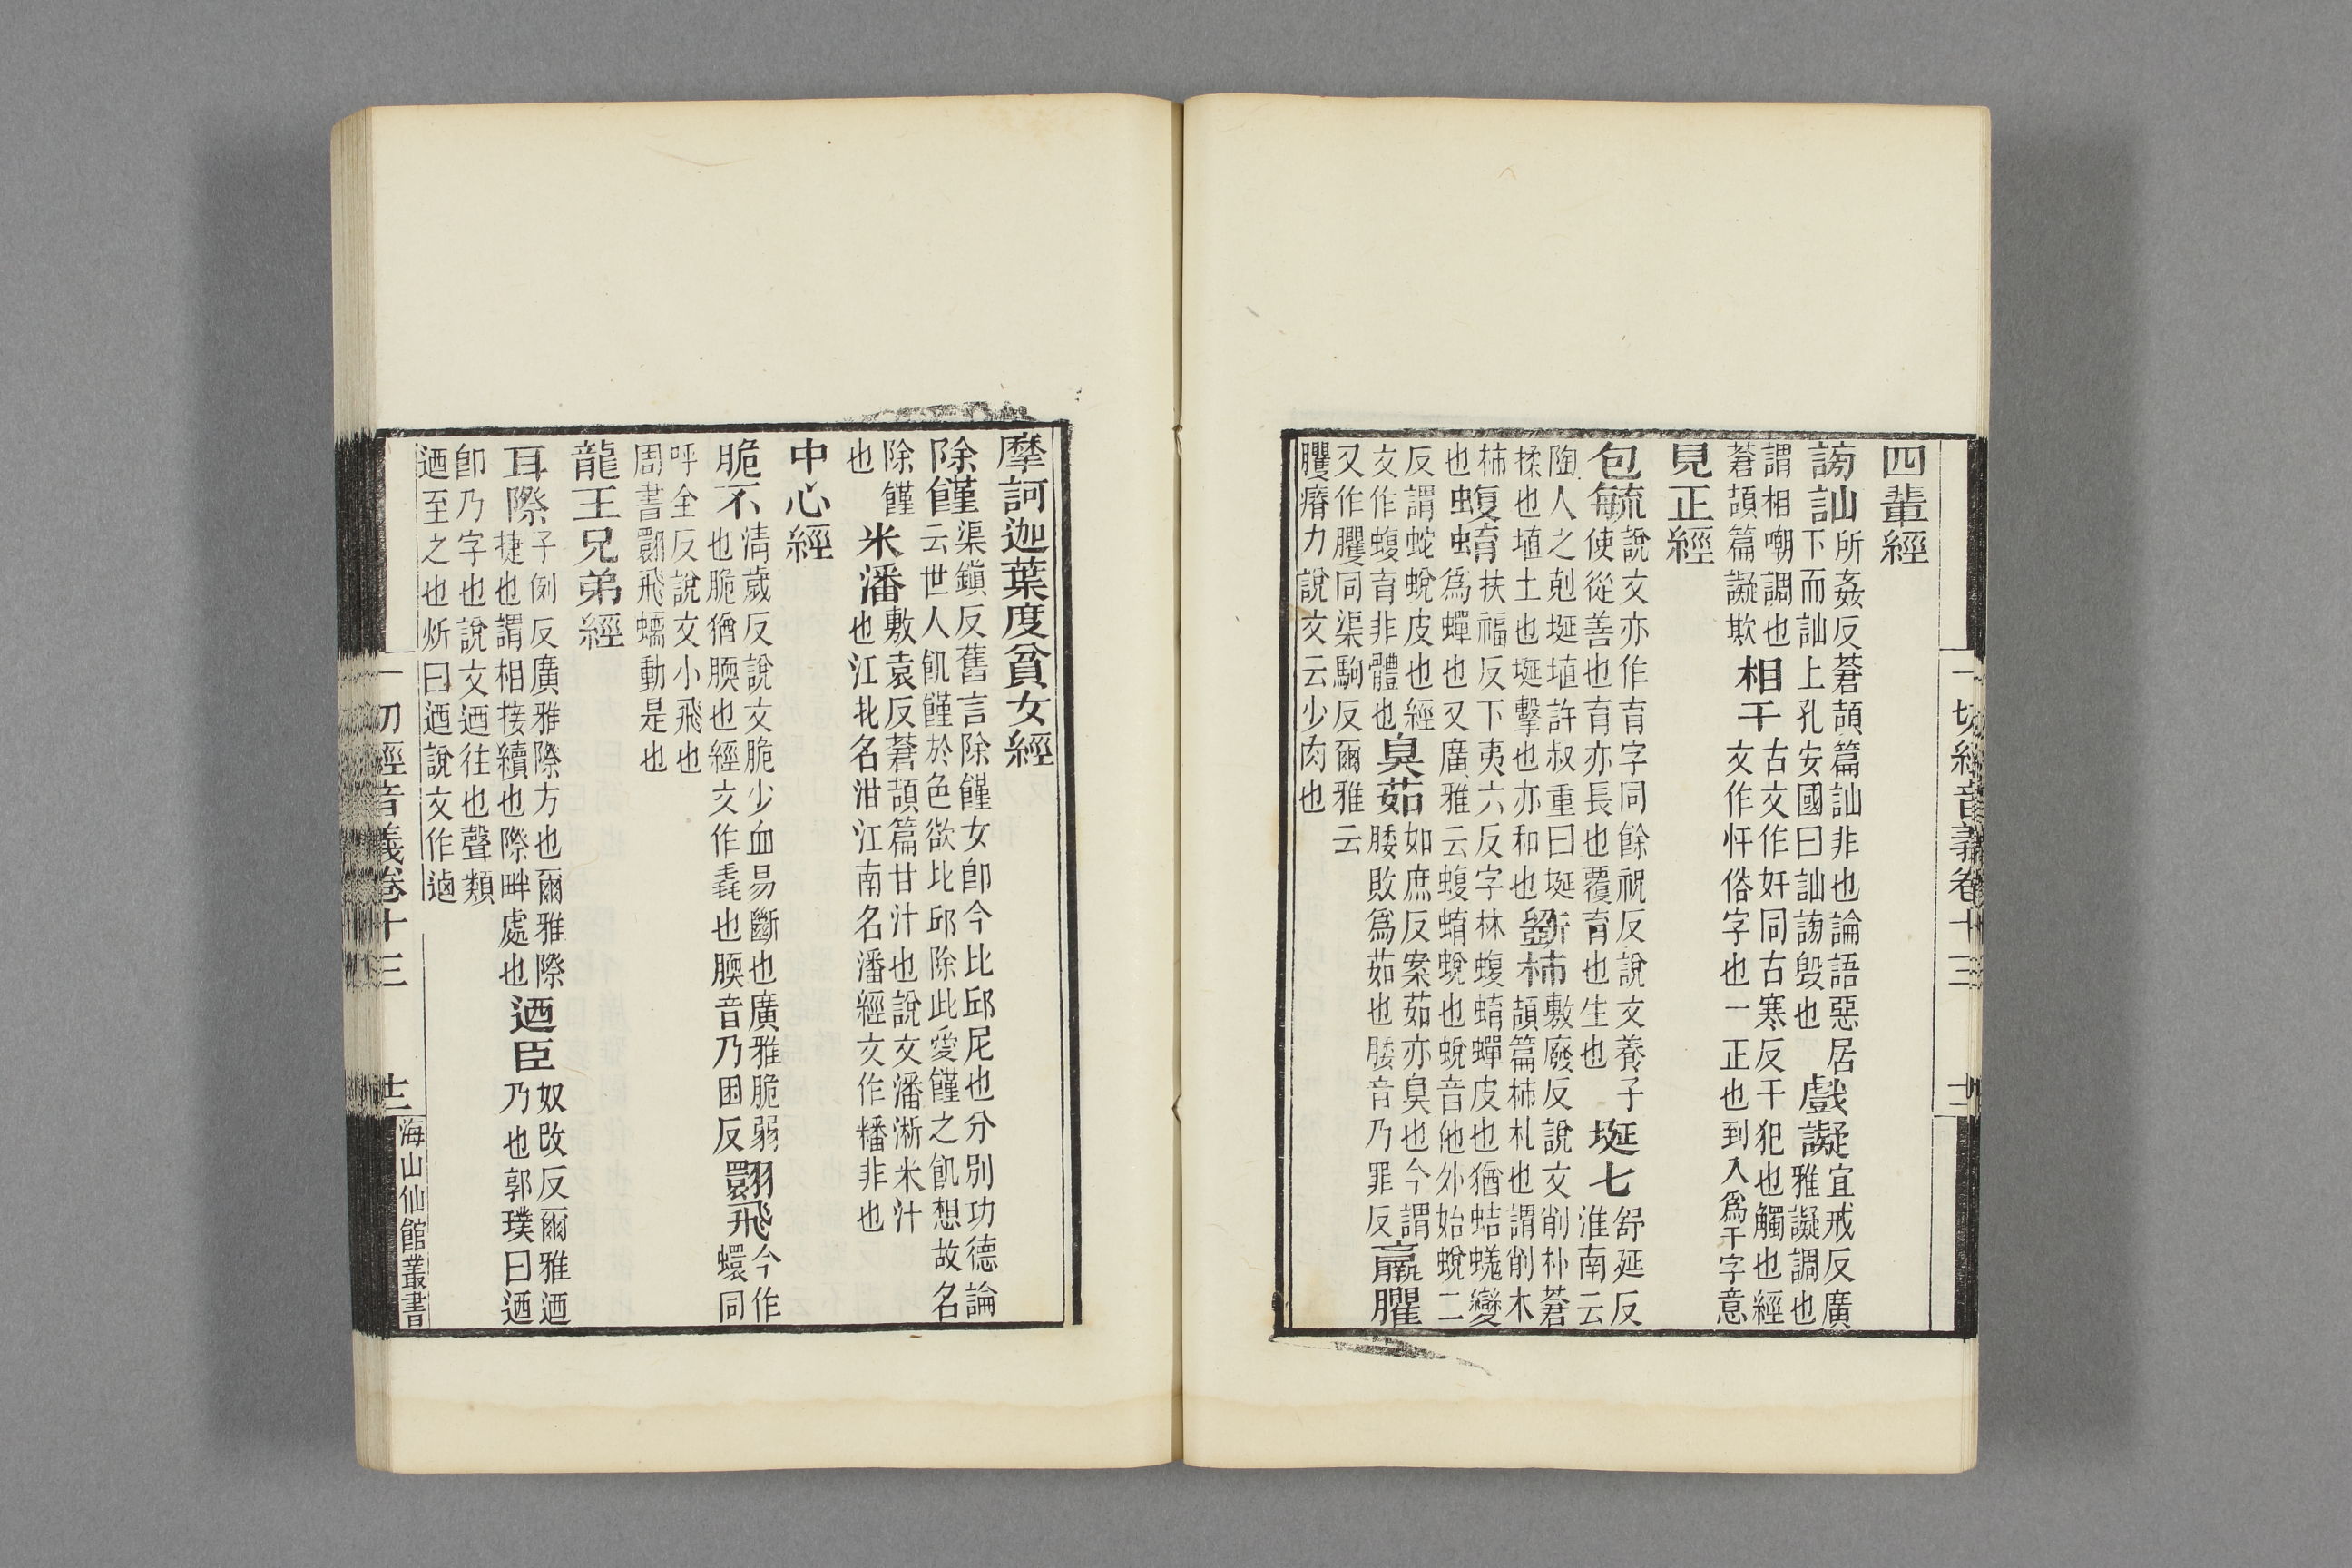 四輩經
謗訕所姦反蒼頡篇訕非也論語惡居
下而訕上孔安國曰訕謗毁也戲譺宜戒反廣
雅譺調也
謂相嘲調也
蒼頡篇譺欺相干古文作奸同古寒反干犯也觸也經
文作忓俗字也一正也到入爲干字意
見正經
包毓說文亦作育字同餘祝反說文養子
使從善也育亦長也覆育也生也埏七舒延反
淮南云
陶人之剋埏埴許叔重曰埏
揉也埴土也埏擊也亦和也斵柹敷廢反說文削朴蒼
頡篇柹札也謂削木
柹
也蝮蜟扶福反下夷六反字林蝮蜟蟬皮也猶蛣蟯變
爲蟬也又廣雅云蝮蜟蛻也蛻音他外始蛻二
反謂蛇蛻皮也經
文作蝮育非體也臭茹如庶反案茹亦臭也今謂
腇敗爲茹也腇音乃罪反羸臞
又作臞同渠駒反爾雅云
臞瘠力說文云少肉也
一切經音義卷十三
十二
摩訶迦葉度貧女經
除饉渠鎮反舊言除饉女卽今比邱尼也分別功德論
云世人飢饉於色欲比邱除此愛饉之飢想故名
除饉
也米潘敷袁反蒼頡篇甘汁也說文潘淅米汁
也江北名泔江南名潘經文作䊩非也
中心經
脆不淸歲反說文脆少血易斷也廣雅脆弱
也脆猶腝也經文作毳也腝音乃困反翾飛今作
蠉同
呼全反說文小飛也
周書翾飛蠕動是也
龍王兄弟經
耳際子例反廣雅際方也爾雅際
捷也謂相接續也際畔處也迺臣奴改反爾雅迺
乃也郭璞曰迺
卽乃字也說文迺往也聲類
迺至之也炘曰迺說文作逌
一切經音義卷十三
十二
海山仙館叢書